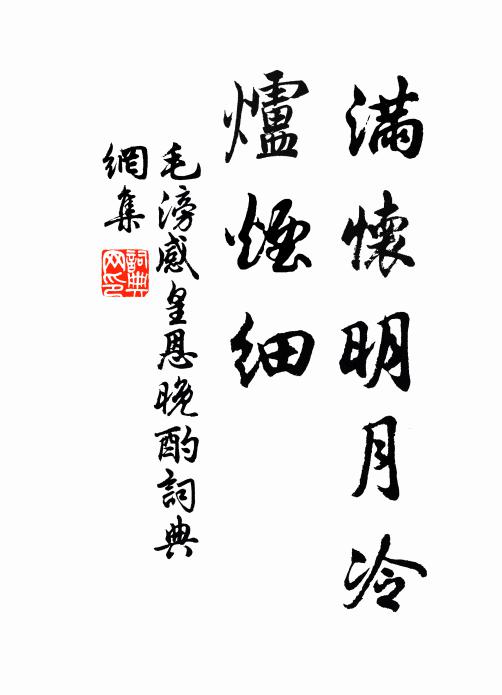 滿懷明月冷
爐煙細
毛滂感皇恩晚酌詞典
網集
詞典網印